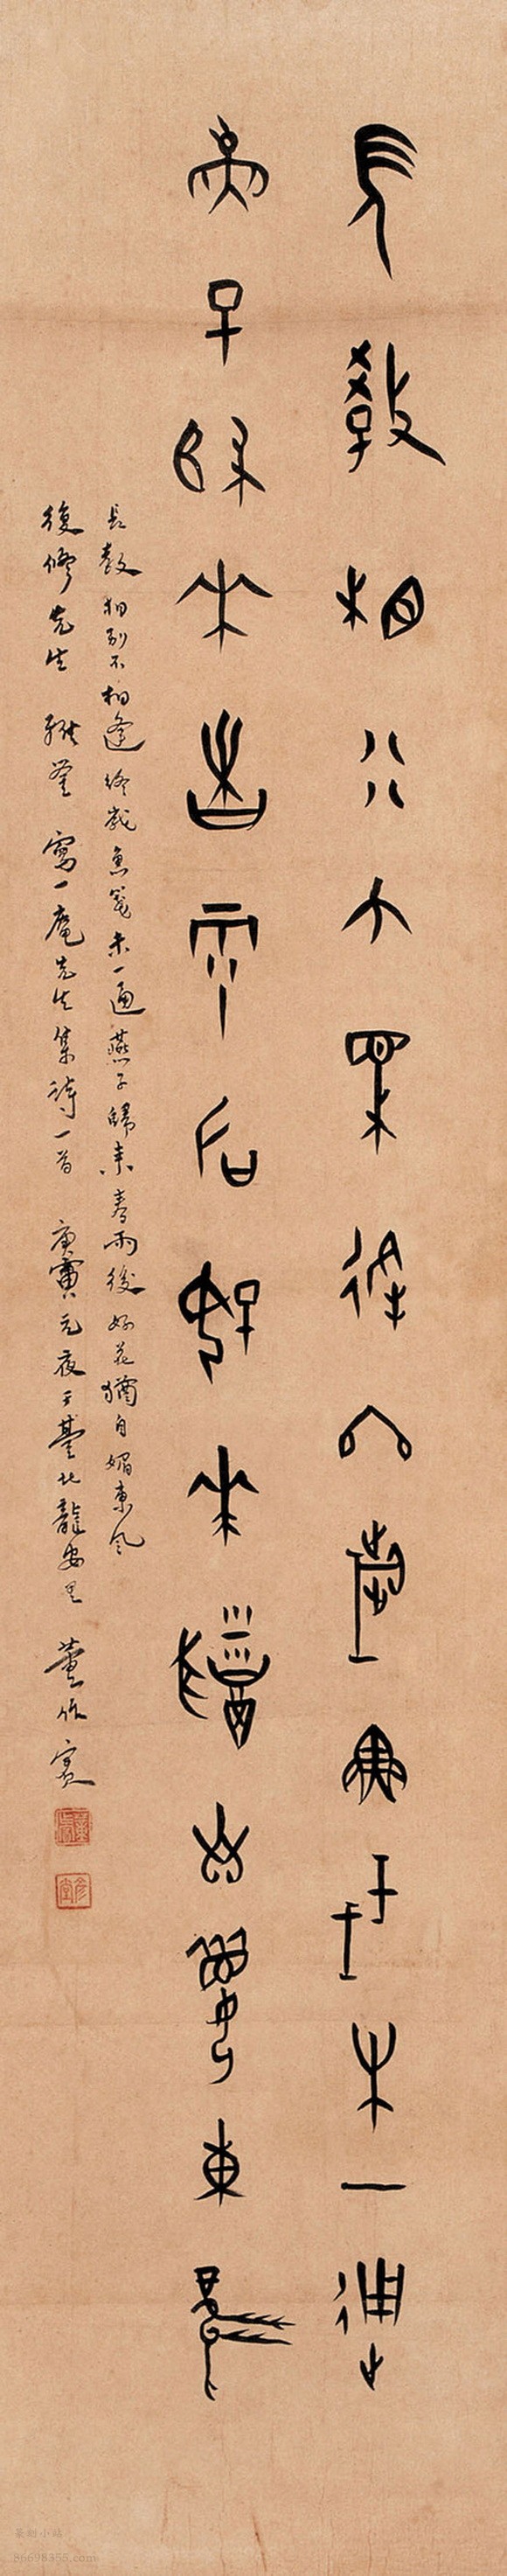 長教相別不相逢終歲魚箋未一通
燕子歸來春雨後好花猶自媚東風
長教相別不相逢終歲魚箋未一通燕子歸來春雨後好花猶自媚東風
復修先生 雅鑒 寫一庵先生集詩一首 庚寅元夜于臺北龍安里 董作賓
彥堂
篆刻小站
86698355.com